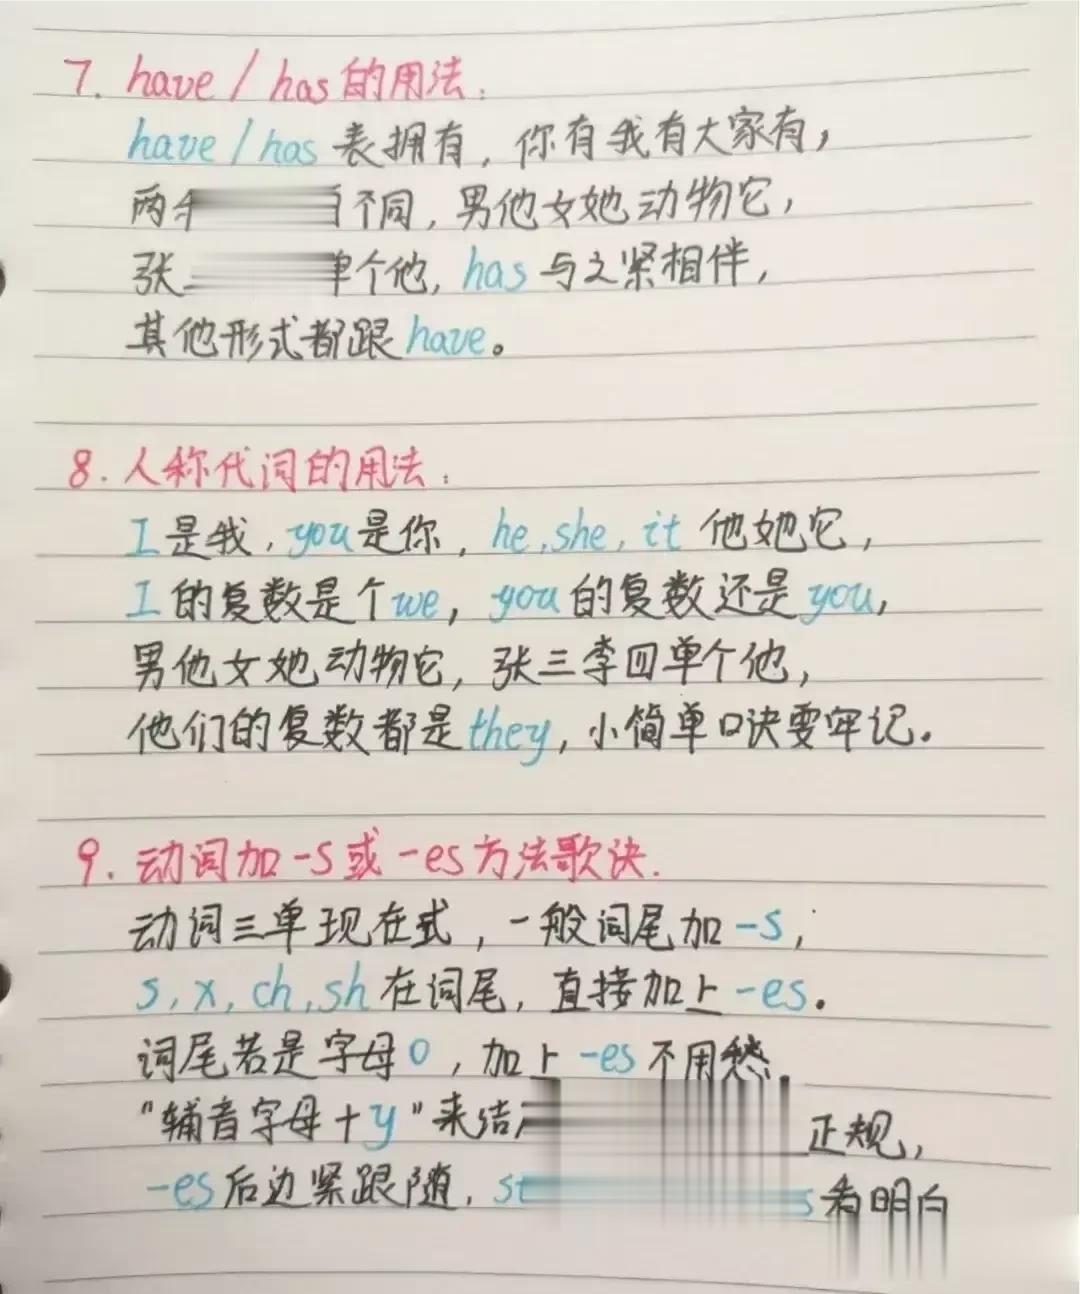 7. have / has的用法:
have / has 表拥有, 你有我有大家有,
两 个同, 男他女她动物它,
张 单个他, has 与之紧相伴,
其他形式都跟have。
8. 人称代词的用法:
I是我, you是你, he, she, it 他她它,
I 的复数是个we, you 的复数还是you,
男他女她动物它, 张三李四单个他,
他们的复数都是they, 小简单口诀要牢记。
9. 动词加-s或-es方法歌诀.
动词三单现在式, 一般词尾加-s;
s, x, ch, sh在词尾, 直接加上-es。
词尾若是字母o, 加上-es不用愁.
"辅音字母+y"来结 正规,
-es后边紧跟随, 看明白